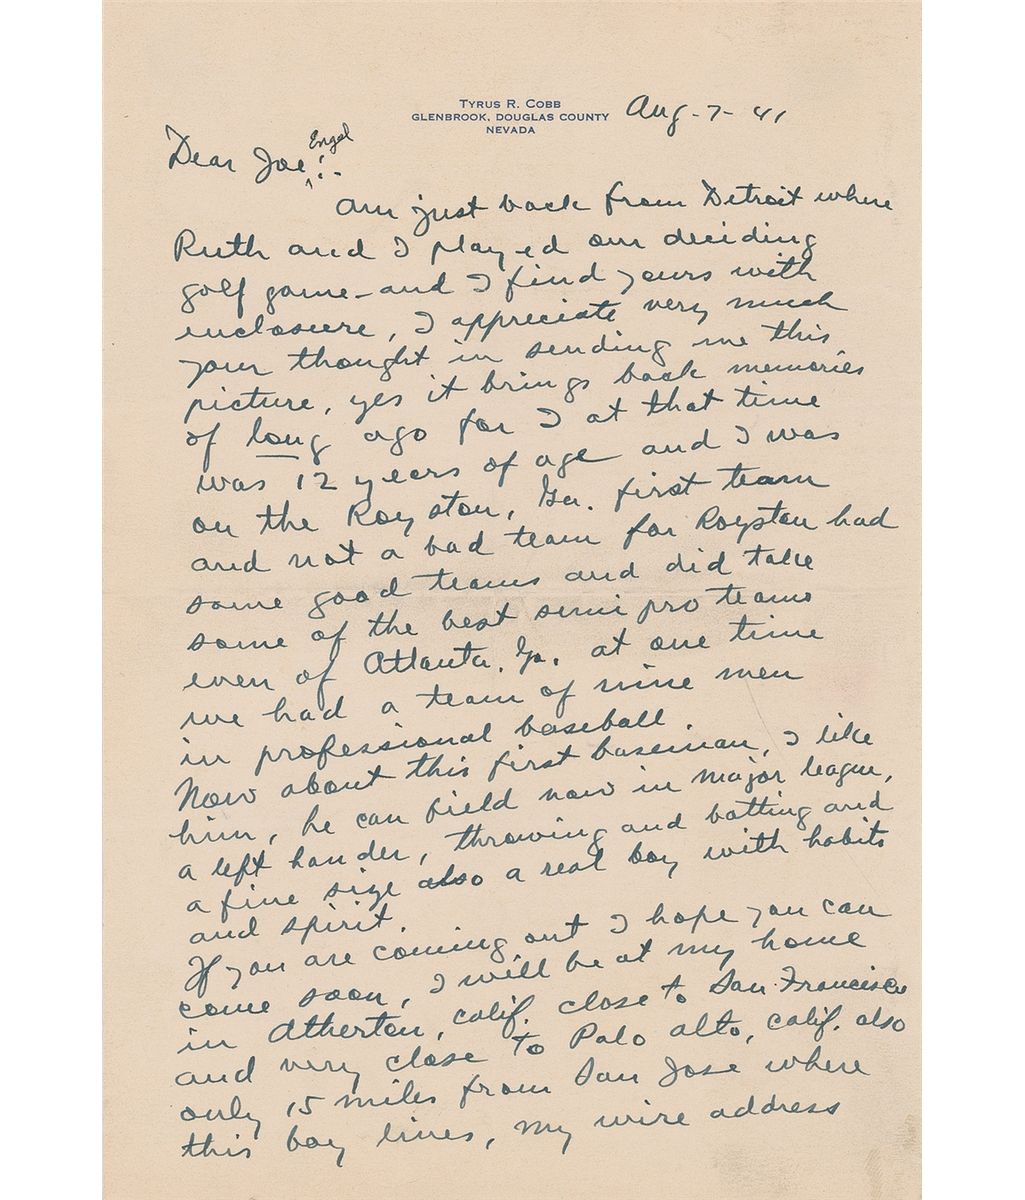 TYRUS R. COBB
GLENBROOK, DOUGLAS COUNTY
NEVADA
Aug-7-41
Engel
Dear Joe:-
Am just back from Detroit where
Ruth and I played our deciding
golf game - and I find yours with
enclosure, I appreciate very much
your thought in sending me this
picture, yes it brings back memories
of long ago for I at that time
was 12 years of age and I was
on the Royston, Ga. first team
and not a bad team for Royston had
some good teams and did take
some of the best semi pro teams
even of Atlanta, Ga. at one time
we had a team of nine men
in professional baseball.
Now about this first baseman, I like
him, he can field now in major league,
a left hander, throwing and batting and
a fine size also a real boy with habits
and spirit.
If you are coming out I hope you can
come soon, I will be at my home
in Atherton, Calif. close to San Francisco
and very close to Palo Alto, Calif. also
only 15 miles from San Jose where
this boy lives, my wire address